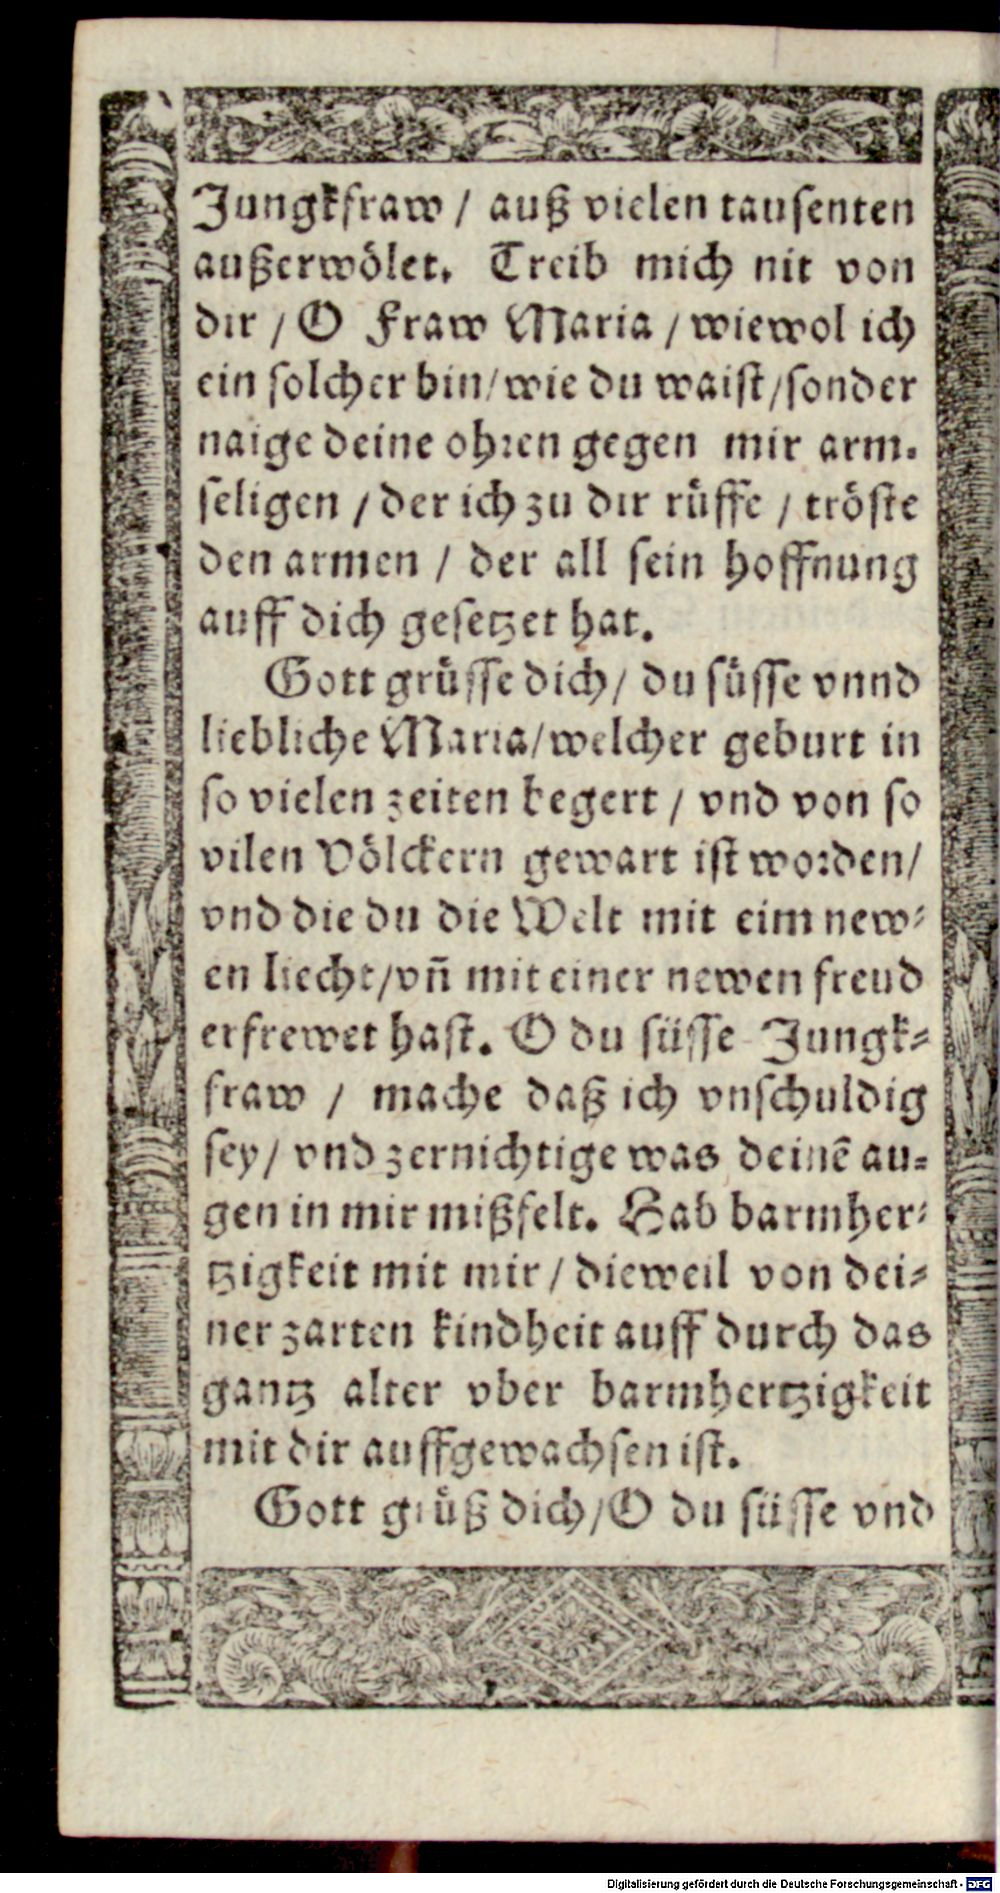 Jungkfraw / auß vielen tausenten
außerwölet. Treib mich nit von
dir / O Fraw Maria / wiewol ich
ein solcher bin / wie du waist / sonder
naige deine ohren gegen mir arm-
seligen / der ich zu dir rüffe / tröste
den armen / der all sein hoffnung
auff dich gesetzet hat.
Gott grüsse dich / du süsse vnnd
liebliche Maria / welcher geburt in
so vielen zeiten begert / vnd von so
vilen Völckern gewart ist worden /
vnd die du die Welt mit eim new-
en liecht / vñ mit einer newen freud
erfrewet hast. O du süsse Jungk-
fraw / mache daß ich vnschuldig
sey / vnd zernichtige was deinē au-
gen in mir mißfelt. Hab barmher-
tzigkeit mit mir / dieweil von dei-
ner zarten kindheit auff durch das
gantz alter vber barmhertzigkeit
mit dir auffgewachsen ist.
Gott grüß dich / O du süsse vnd
Digitalisierung gefördert durch die Deutsche Forschungsgemeinschaft - DFG